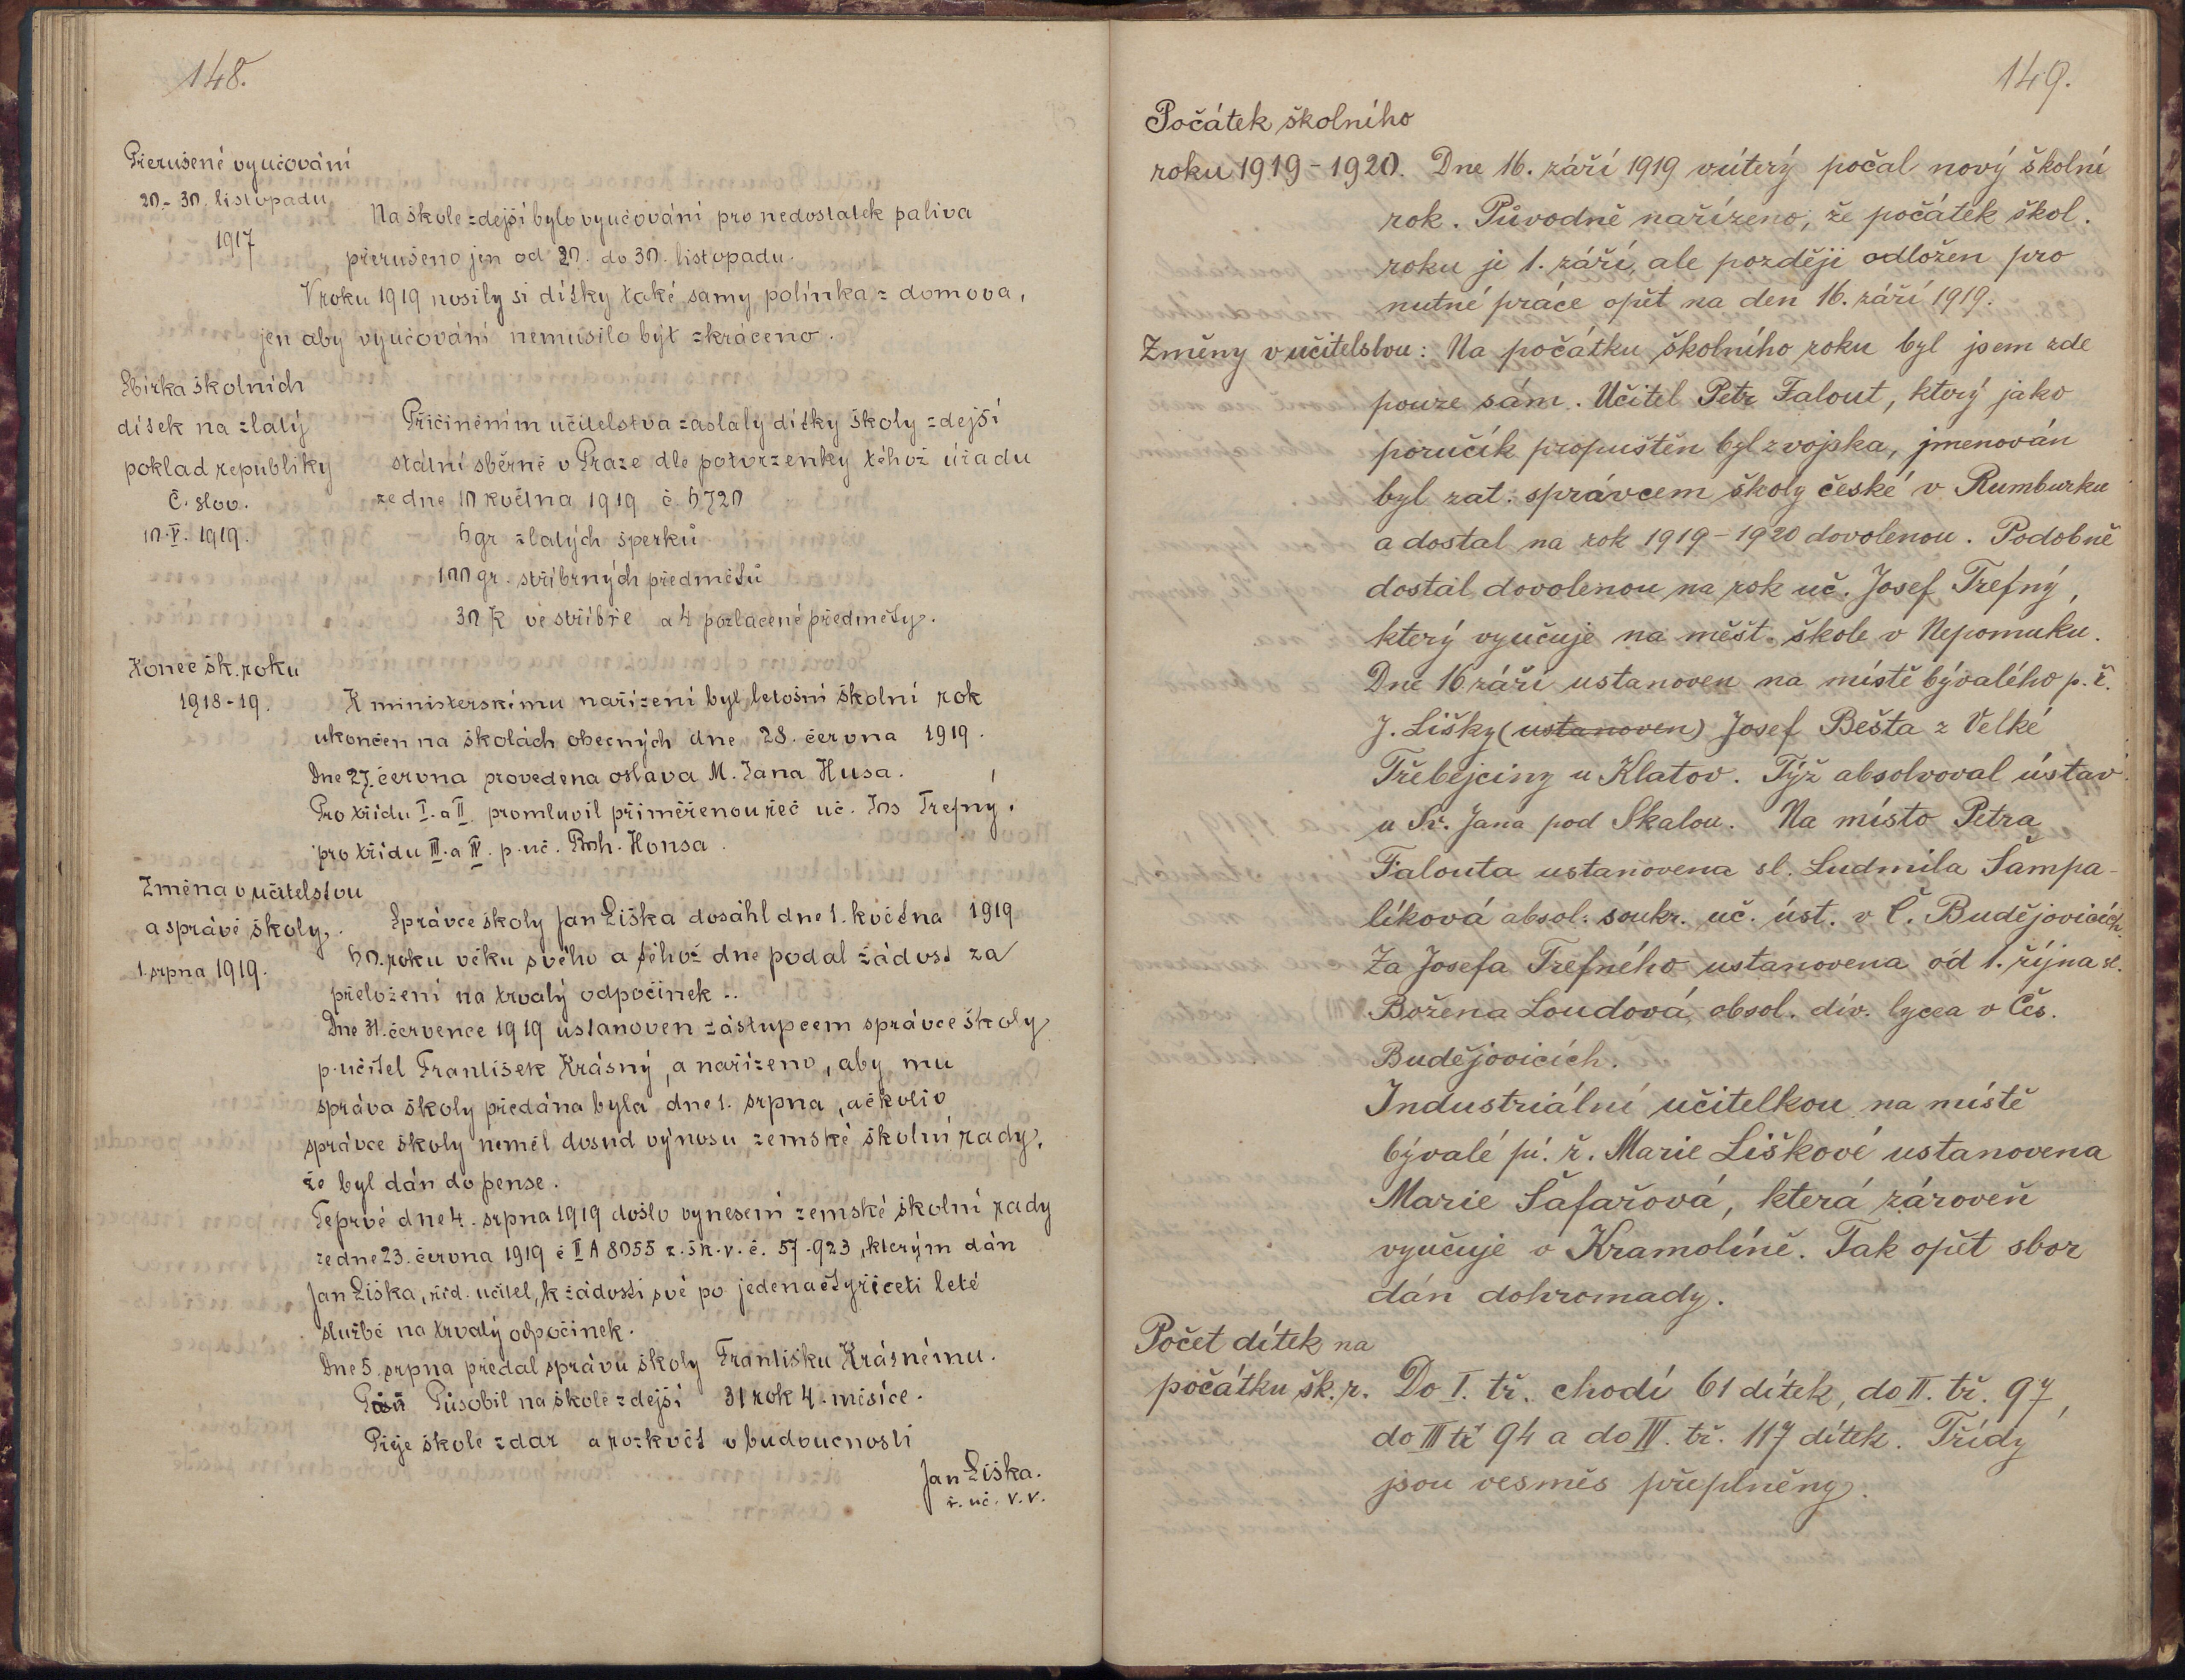 148.
Přerušené vyučování
20.-30. listopadu
1917
Na škole zdejší bylo vyučování pro nedostatek paliva
přerušeno jen od 20. do 30. listopadu.
V roku 1919 nosily si dítky také samy polínka z domova,
jen aby vyučování nemusilo být zkráceno.
Sbírka školních
dítek na zlatý
poklad republiky
Č. slov.
10.V. 1919.
Přičiněním učitelstva zaslaly dítky školy zdejší
státní sběrně v Praze dle potvrzenky téhož úřadu
ze dne 10 května 1919 č. 5720
5 gr zlatých šperků
100 gr. stříbrných předmětů
30 K ve stříbře a 4 pozlacené předměty.
Konec šk. roku
1918-19.
K ministerskímu nařízení byl letošní školní rok
ukončen na školách obecných dne 28. června 1919.
Dne 27. června provedena oslava M. Jana Husa.
Pro třídu I. a II. promluvil přiměřenou řeč uč. Jos Trefný,
pro třídu III. a IV. p. uč. Boh. Honsa.
Změna v učitelstvu
a správě školy.
1. srpna 1919.
Správce školy Jan Liška dosáhl dne 1. května 1919
50. roku věku svého a téhož dne podal žádost za
přeložení na trvalý odpočinek..
Dne 31. července 1919 ustanoven zástupcem správce školy
p. učitel František Krásný, a nařízeno, aby mu
správa školy předána byla dne 1. srpna, ačkoliv
správce školy neměl dosud výnosu zemské školní rady,
že byl dán do pense.
Teprvé dne 4. srpna 1919 došlo vynesení zemské školní rady
ze dne 23. června 1919 č II A 8055 z. šk. v. č. 57.923, kterým dán
Jan Liška, říd. učitel, k žádosti své po jedenačtyřiceti leté
službě na trvalý odpočinek.
Dne 5. srpna předal správu školy Františku Krásnému.
Působil na škole zdejší 31 rok 4. měsíce.
Přeje škole zdar a rozkvět v budoucnosti
Jan Liška.
ř. uč. v. v.
149.
Počátek školního
roku 1919-1920. Dne 16. září 1919 v úterý počal nový školní
rok. Původně nařízeno, že počátek škol.
roku je 1. září, ale později odložen pro
nutné práce opět na den 16. září 1919.
Změny v učitelstvu: Na počátku školního roku byl jsem zde
pouze sám. Učitel Petr Falout, který jako
poručík propuštěn byl z vojska, jmenován
byl zat. správcem školy české v Rumburku
a dostal na rok 1919-1920 dovolenou. Podobně
dostal dovolenou na rok uč. Josef Trefný,
který vyučuje na měšt. škole v Nepomuku.
Dne 16 září ustanoven na místě bývalého p. ř.
J. Lišky (ustanoven) Josef Bešta z Velké
Třebejciny u Klatov. Týž absolvoval ústav
u Sv. Jana pod Skalou. Na místo Petra
Falouta ustanovena sl. Ludmila Šampa-
líková absol. soukr. uč. úst. v Č. Budějovicích.
Za Josefa Trefného ustanovena od 1. října sl.
Božena Loudová, obsol. dív. lycea v Čes.
Budějovicích.
Industriální učitelkou na místě
bývalé pí. ř. Marie Liškové ustanovena
Marie Šafařová, která zároveň
vyučuje v Kramolíně. Tak opět sbor
dán dohromady.
Počet dítek na
počátku šk. r. Do I. tř. chodí 61 dítek, do II. tř. 97,
do III tř 94 a do IV. tř. 117 dítek. Třídy
jsou vesměs přeplněny.